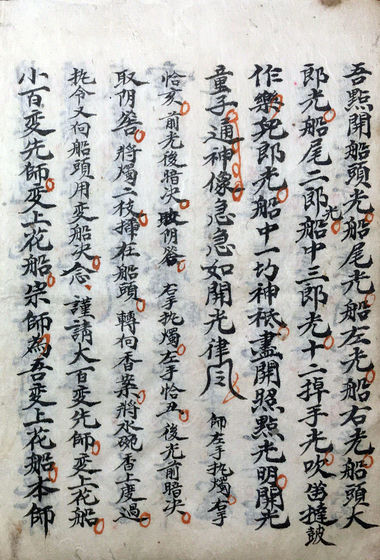 吾點開船頭光船尾光船左光船右光船頭大
郎光船尾二郎光船中三郎光十二掉手光吹笛撻鼓
作樂兒郎光船中一切神祗盡開照點光明開光
童子通神像急急如開光律令 師左手执燭右手
恰亥前光後暗决取阴筶 右手执燭左手恰丑後光前暗决
取阴筶將燭二枝插在船頭轉向香案將水碗香上度過
执令又向船頭用变船决念謹請大百变先師变上花船
小百变先師变上花船宗師為吾变上花船本師